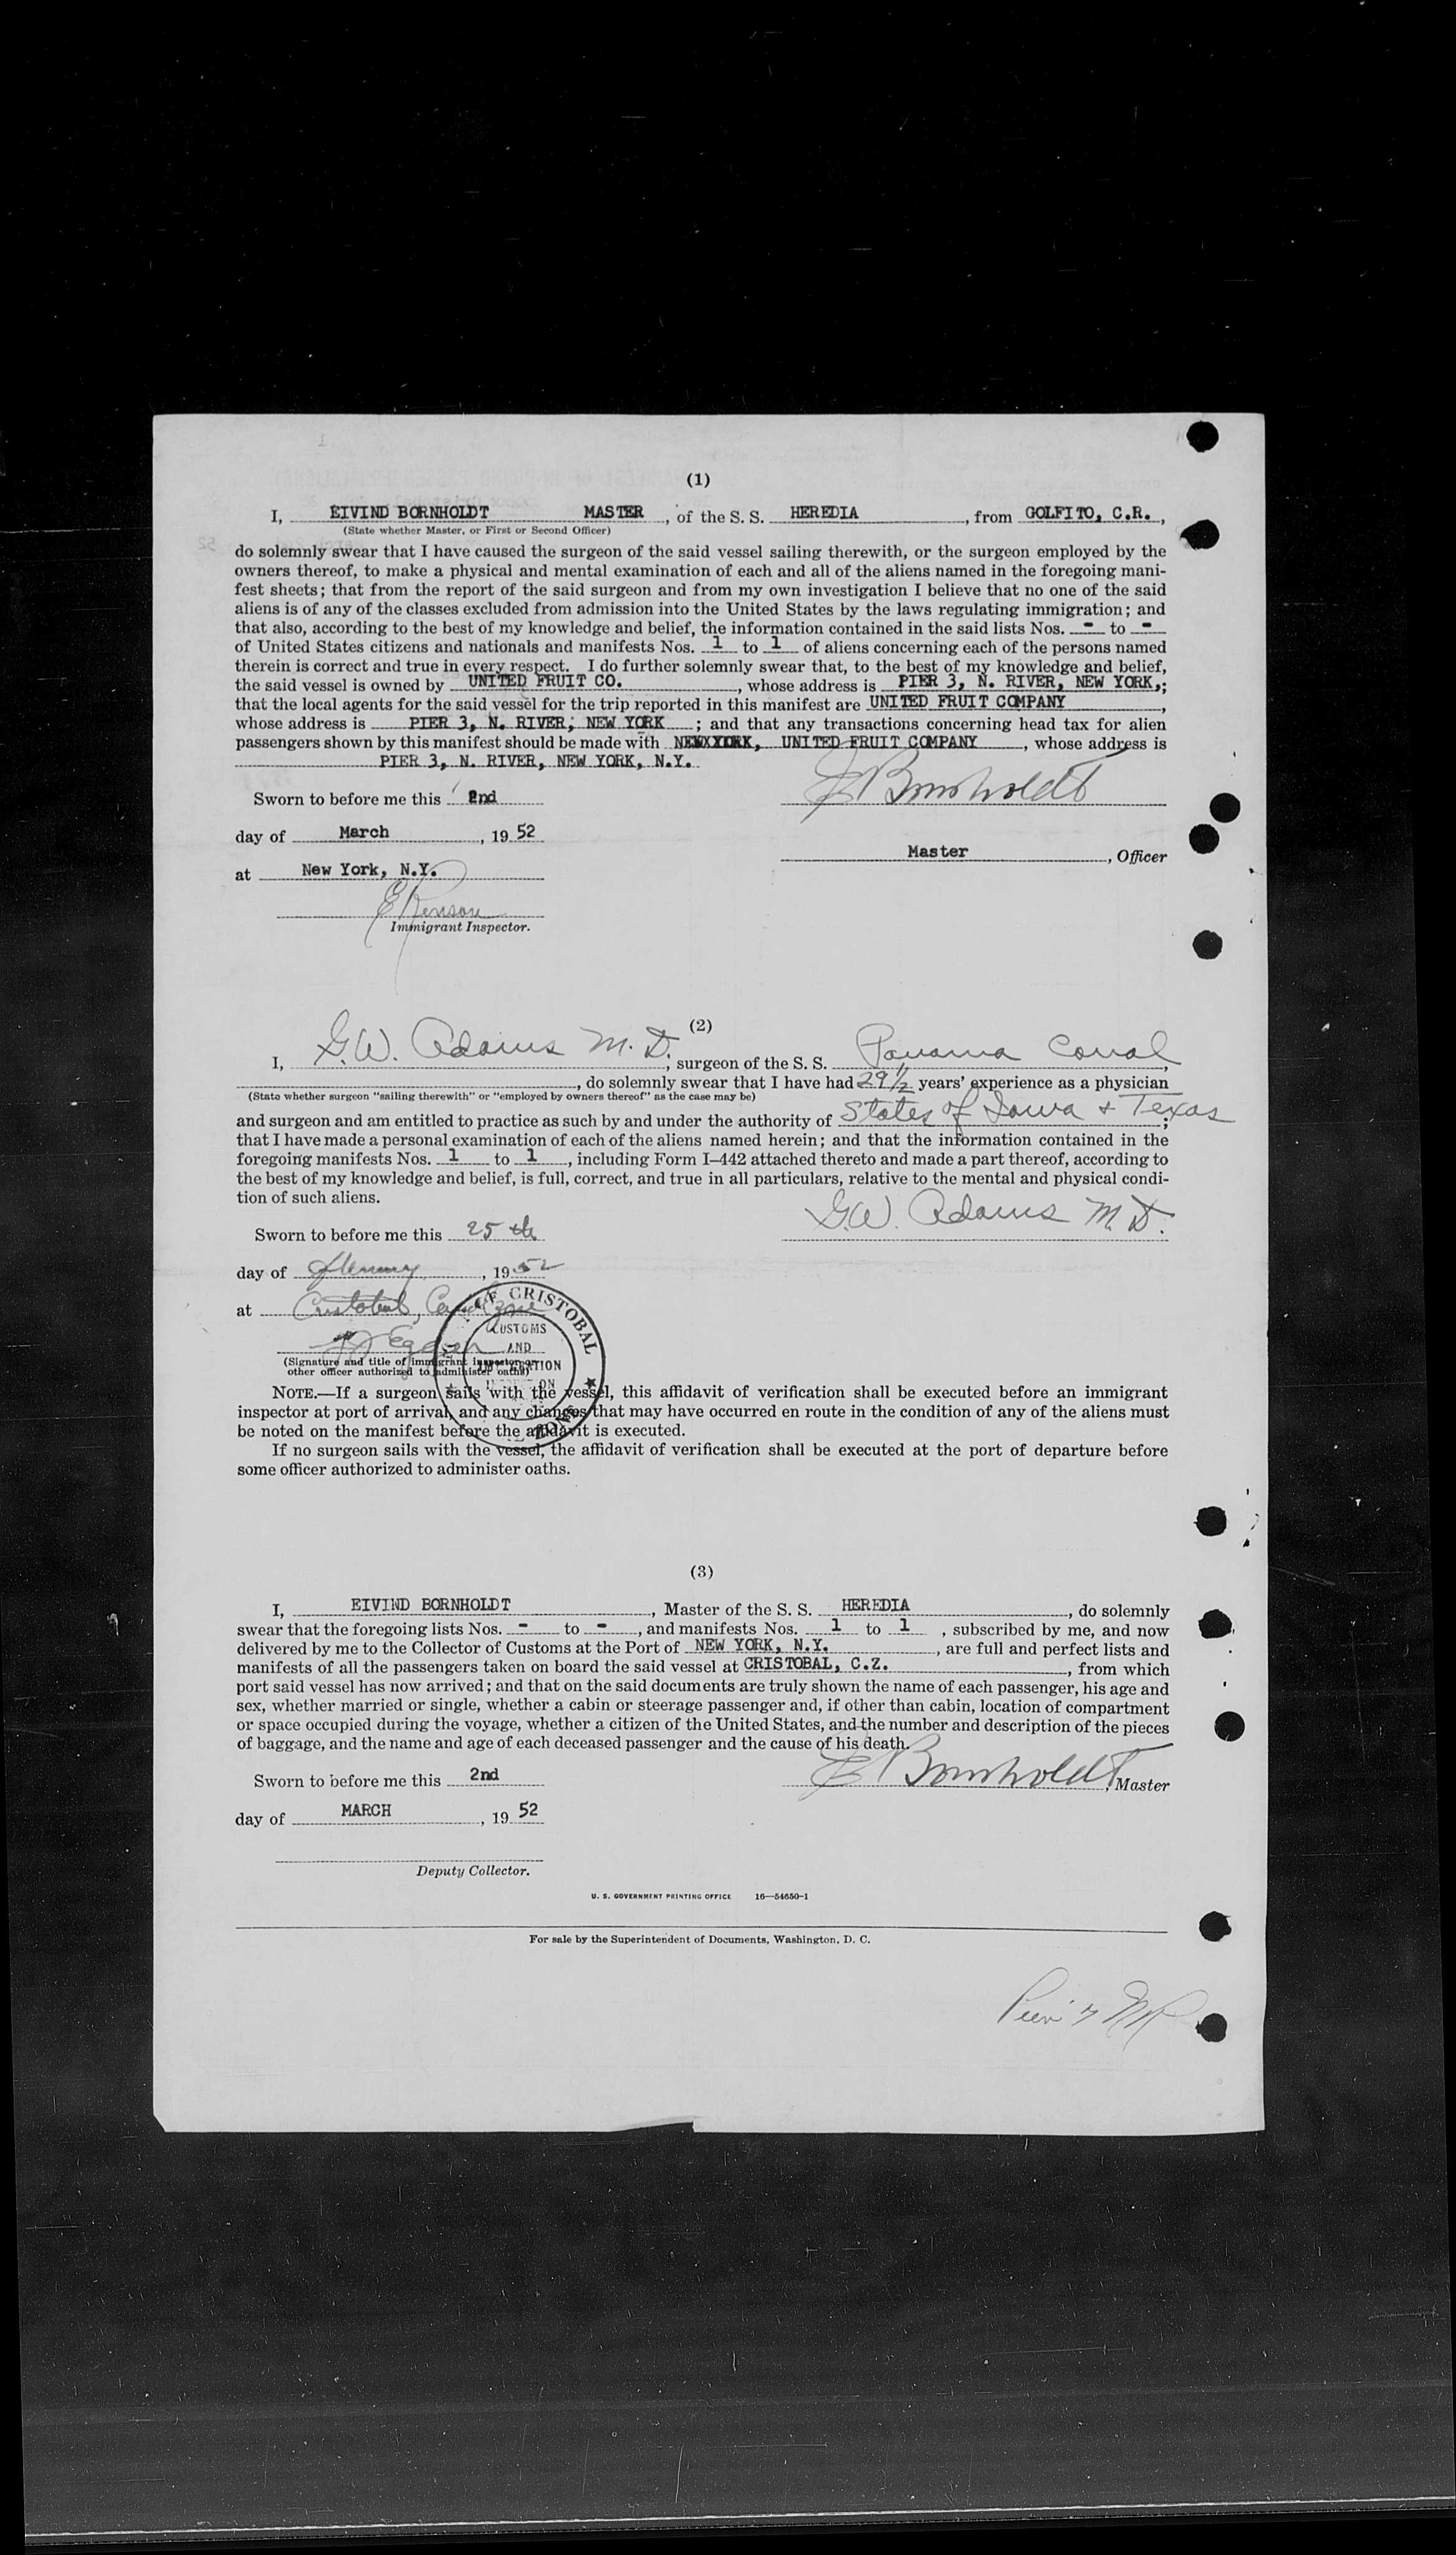 (1)
I, EIVIND BORNHOLDT MASTER, of the S. S. HEREDIA, from GOLFITO, C.R.,
(State whether Master, or First or Second Officer)
do solemnly swear that I have caused the surgeon of the said vessel sailing therewith, or the surgeon employed by the
owners thereof, to make a physical and mental examination of each and all of the aliens named in the foregoing mani-
fest sheets; that from the report of the said surgeon and from my own investigation I believe that no one of the said
aliens is of any of the classes excluded from admission into the United States by the laws regulating immigration; and
that also, according to the best of my knowledge and belief, the information contained in the said lists Nos. - to -
of United States citizens and nationals and manifests Nos. 1 to 1 of aliens concerning each of the persons named
therein is correct and true in every respect. I do further solemnly swear that, to the best of my knowledge and belief,
the said vessel is owned by UNITED FRUIT CO., whose address is PIER 3, N. RIVER, NEW YORK,;
that the local agents for the said vessel for the trip reported in this manifest are UNITED FRUIT COMPANY,
whose address is PIER 3, N. RIVER, NEW YORK; and that any transactions concerning head tax for alien
passengers shown by this manifest should be made with UNITED FRUIT COMPANY, whose address is
PIER 3, N. RIVER, NEW YORK, N.Y.
Sworn to before me this 2nd
E Bornholdt
day of March, 19 52
Master, Officer
at New York, N.Y.
Immigrant Inspector.
(2)
I, G.W. Adams M.D., surgeon of the S. S. Panama Canal,
, do solemnly swear that I have had 29 1/2 years' experience as a physician
(State whether surgeon "sailing therewith" or "employed by owners thereof" as the case may be)
and surgeon and am entitled to practice as such by and under the authority of States of Iowa + Texas;
that I have made a personal examination of each of the aliens named herein; and that the information contained in the
foregoing manifests Nos. 1 to 1, including Form I-442 attached thereto and made a part thereof, according to
the best of my knowledge and belief, is full, correct, and true in all particulars, relative to the mental and physical condi-
tion of such aliens.
G.W. Adams M.D.
Sworn to before me this 25 th
day of , 19 52
at Cristobal, Canal Zone
CRISTOBAL
CUSTOMS
AND
ZONE
(Signature and title of immigrant inspector or
other officer authorized to administer oaths)
NOTE.—If a surgeon sails with the vessel, this affidavit of verification shall be executed before an immigrant
inspector at port of arrival, and any changes that may have occurred en route in the condition of any of the aliens must
be noted on the manifest before the affidavit is executed.
If no surgeon sails with the vessel, the affidavit of verification shall be executed at the port of departure before
some officer authorized to administer oaths.
(3)
I, EIVIND BORNHOLDT, Master of the S. S. HEREDIA, do solemnly
swear that the foregoing lists Nos. - to -, and manifests Nos. 1 to 1, subscribed by me, and now
delivered by me to the Collector of Customs at the Port of NEW YORK, N.Y., are full and perfect lists and
manifests of all the passengers taken on board the said vessel at CRISTOBAL, C.Z., from which
port said vessel has now arrived; and that on the said documents are truly shown the name of each passenger, his age and
sex, whether married or single, whether a cabin or steerage passenger and, if other than cabin, location of compartment
or space occupied during the voyage, whether a citizen of the United States, and the number and description of the pieces
of baggage, and the name and age of each deceased passenger and the cause of his death.
Sworn to before me this 2nd
E Bornholdt, Master
day of MARCH, 19 52
Deputy Collector.
U. S. GOVERNMENT PRINTING OFFICE 16—54650-1
For sale by the Superintendent of Documents, Washington, D. C.
Pier 7 NR